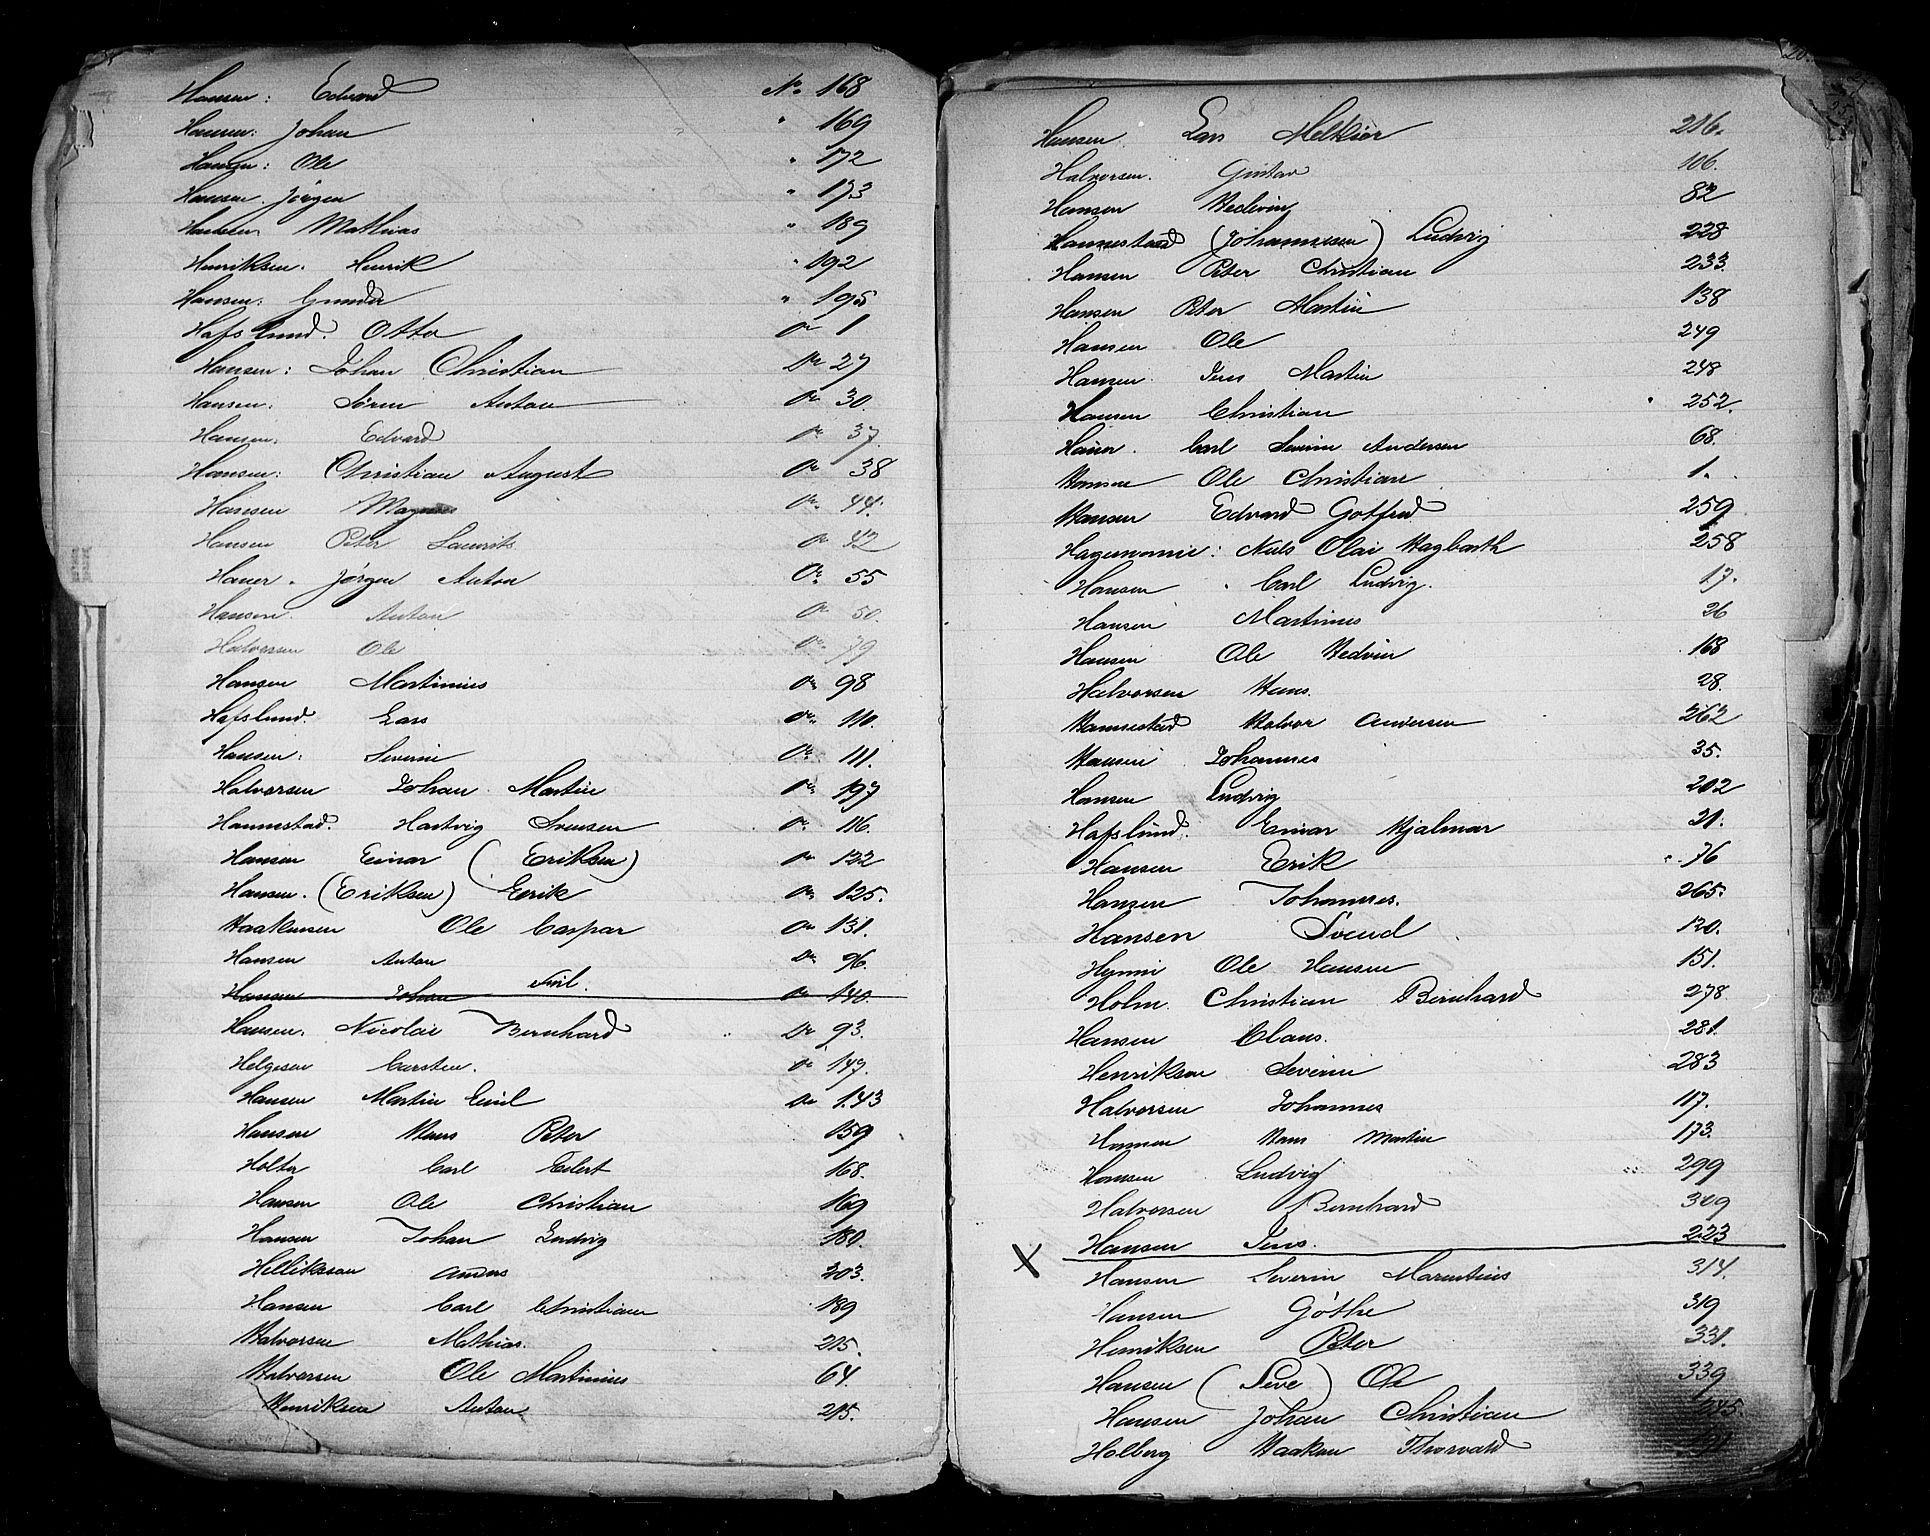 Hansen: Edvard No 168
Hansen: Johan " 169
Hansen: Ole " 172
Hansen. Jörgen " 173
Hansen Mathias " 189
Henriksen. Henrik " 192
Hansen: Gunder " 195
Hafslund. Otto No 1
Hansen: Johan Christian No 27
Hansen: Sören Anton No 30.
Hansen. Edvard No 37.
Hansen: Christian August No 38
Hansen Magnus No 44.
Hansen Peter Laurits No 42
Hauer. Jørgen Anton No 55
Hansen. Anton No 50.
Halvorsen Ole No 79
Hansen Martinius No 98
Hafslund. Lars No 110.
Hansen: Severin No 111.
Halvorsen Johan Martin No 197
Hannestad. Hartvig Svensen No 116.
Hansen Einar (Eriksen) No 122
Hansen. (Eriksen) Eerik No 125.
Haakensen Ole Caspar No 131.
Hansen Anton No 96.
Hansen Johan Emil. No 140.
Hansen. Nicolai Bernhard No 93.
Helgesen Carsten. No 147.
Hansen Martin Emil No 143
Hansen Hans Peter 159
Holter Carl Edert 168.
Hansen Ole Christian 169
Hansen Johan Ludvig 180.
Helliksson Anders 203.
Hansen Carl Christian 189
Halvorsen Mathias. 215.
Halvorsen Ole Martinius 64.
Henriksen Anton 215.
Hansen Lars Melkior 216.
Halvorsen. Gustav 106.
Hansen Hedevin 82
Hannestad (Johannessen) Ludvig 228
Hansen Peter Christian 233.
Hansen Peter Martin 138
Hansen Ole 249
Hansen. Jens Martin 248
Hansen Christian 252.
Hauer. Carl Severin Andersen 68.
Hansen Ole Christian 1.
Hansen Edvard Gotfred 259
Hagemomie: Niels Olai Hagbarth 258
Hansen. Carl Ludvig. 17.
Hansen Martinius 26
Hansen Ole Hedvin 168
Halvorsen Hans. 28.
Hannestad Halvor Andersen 262
Hansen Johannes 35.
Hansen Ludvig 202
Hafslund. Einar Hjalmar 21.
Hansen Eerik 76
Hansen Johannes. 265.
Hansen Svend 120.
Hynni Ole Hansen 151.
Holm. Christian Bernhard 278
Hansen Claus. 281.
Henriksen Severin 283
Halvorsen Johannes 117.
Hansen Hans Martin 173.
Hansen Ludvig 299
Halvorsen Bernhard 309
Hansen Jens. 223
X Hansen Severin Marentius 314.
Hansen Göthe 319
Henriksen Peter 331.
Hansen (Seve) Ole 339
Hansen Johan Christian 345.
Holberg Haakan Thorvald